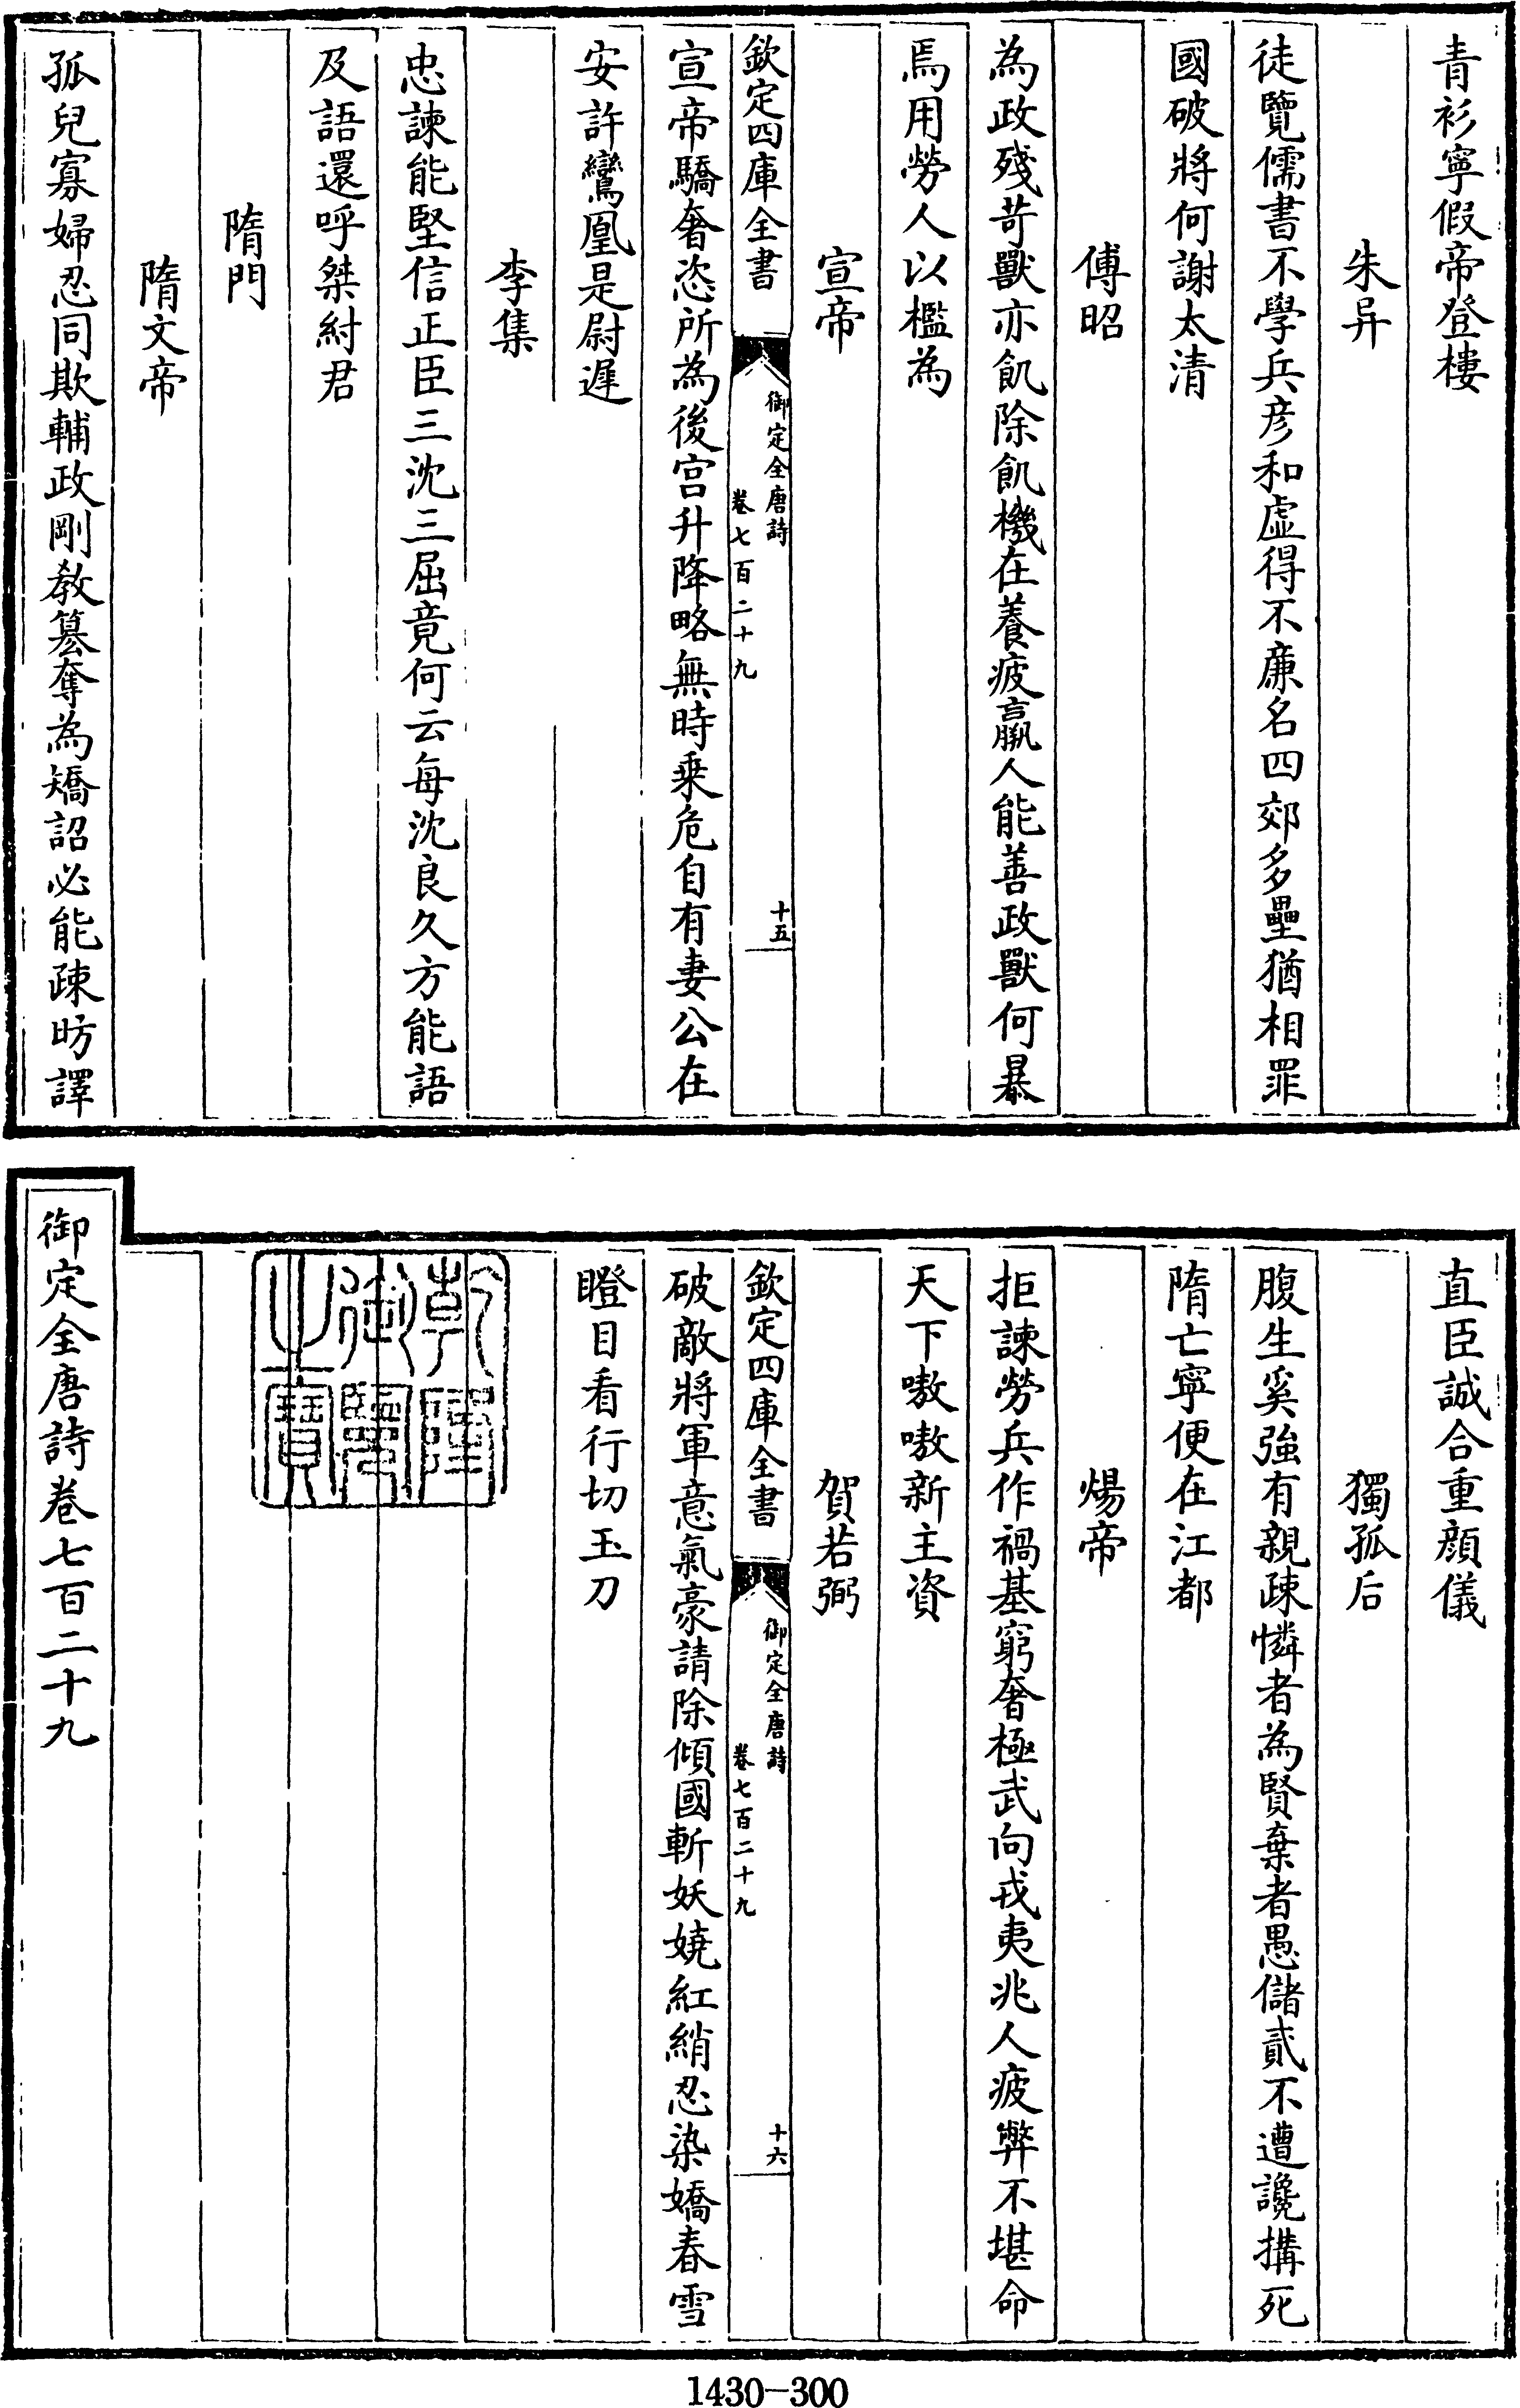 青衫寧假帝登樓
朱异
徒覽儒書不學兵彦和虛得不廉名四郊多壘猶相罪
國破將何謝太清
傅昭
為政殘苛獸亦飢除飢機在養疲羸人能善政獸何暴
焉用勞人以檻為
宣帝
欽定四庫全書
御定全唐詩
卷七百二十九
十五
宣帝驕奢恣所為後宫升降略無時乗危自有妻公在
安許鸞凰是尉遲
李集
忠諫能堅信正臣三沈三屈竟何云每沈良久方能語
及語還呼桀紂君
隋門
隋文帝
孤兒寡婦忍同欺輔政剛教簒奪為矯詔必能疎昉譯
直臣誠合重顔儀
獨孤后
腹生奚強有親疎憐者為賢棄者愚儲貳不遭讒搆死
隋亡寧便在江都
煬帝
拒諫勞兵作禍基窮奢極武向戎夷兆人疲弊不堪命
天下嗷嗷新主資
賀若弼
欽定四庫全書
御定全唐詩
卷七百二十九
十六
破敵將軍意氣豪請除傾國斬妖嬈紅綃忍染嬌春雪
瞪目看行切玉刀
乾隆御覽之寶
御定全唐詩卷七百二十九
1430-300